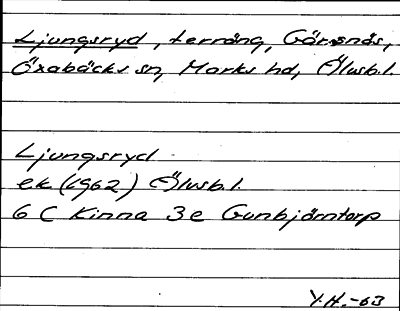 Ljungsryd, terräng, Göransnäs,
Öxabäcks sn, Marks hd, Älvsb.l.
Ljungsryd
ek (1962) Älvsb.l.
6 C Kinna 3e Gunbjörntorp
Y.H.-63